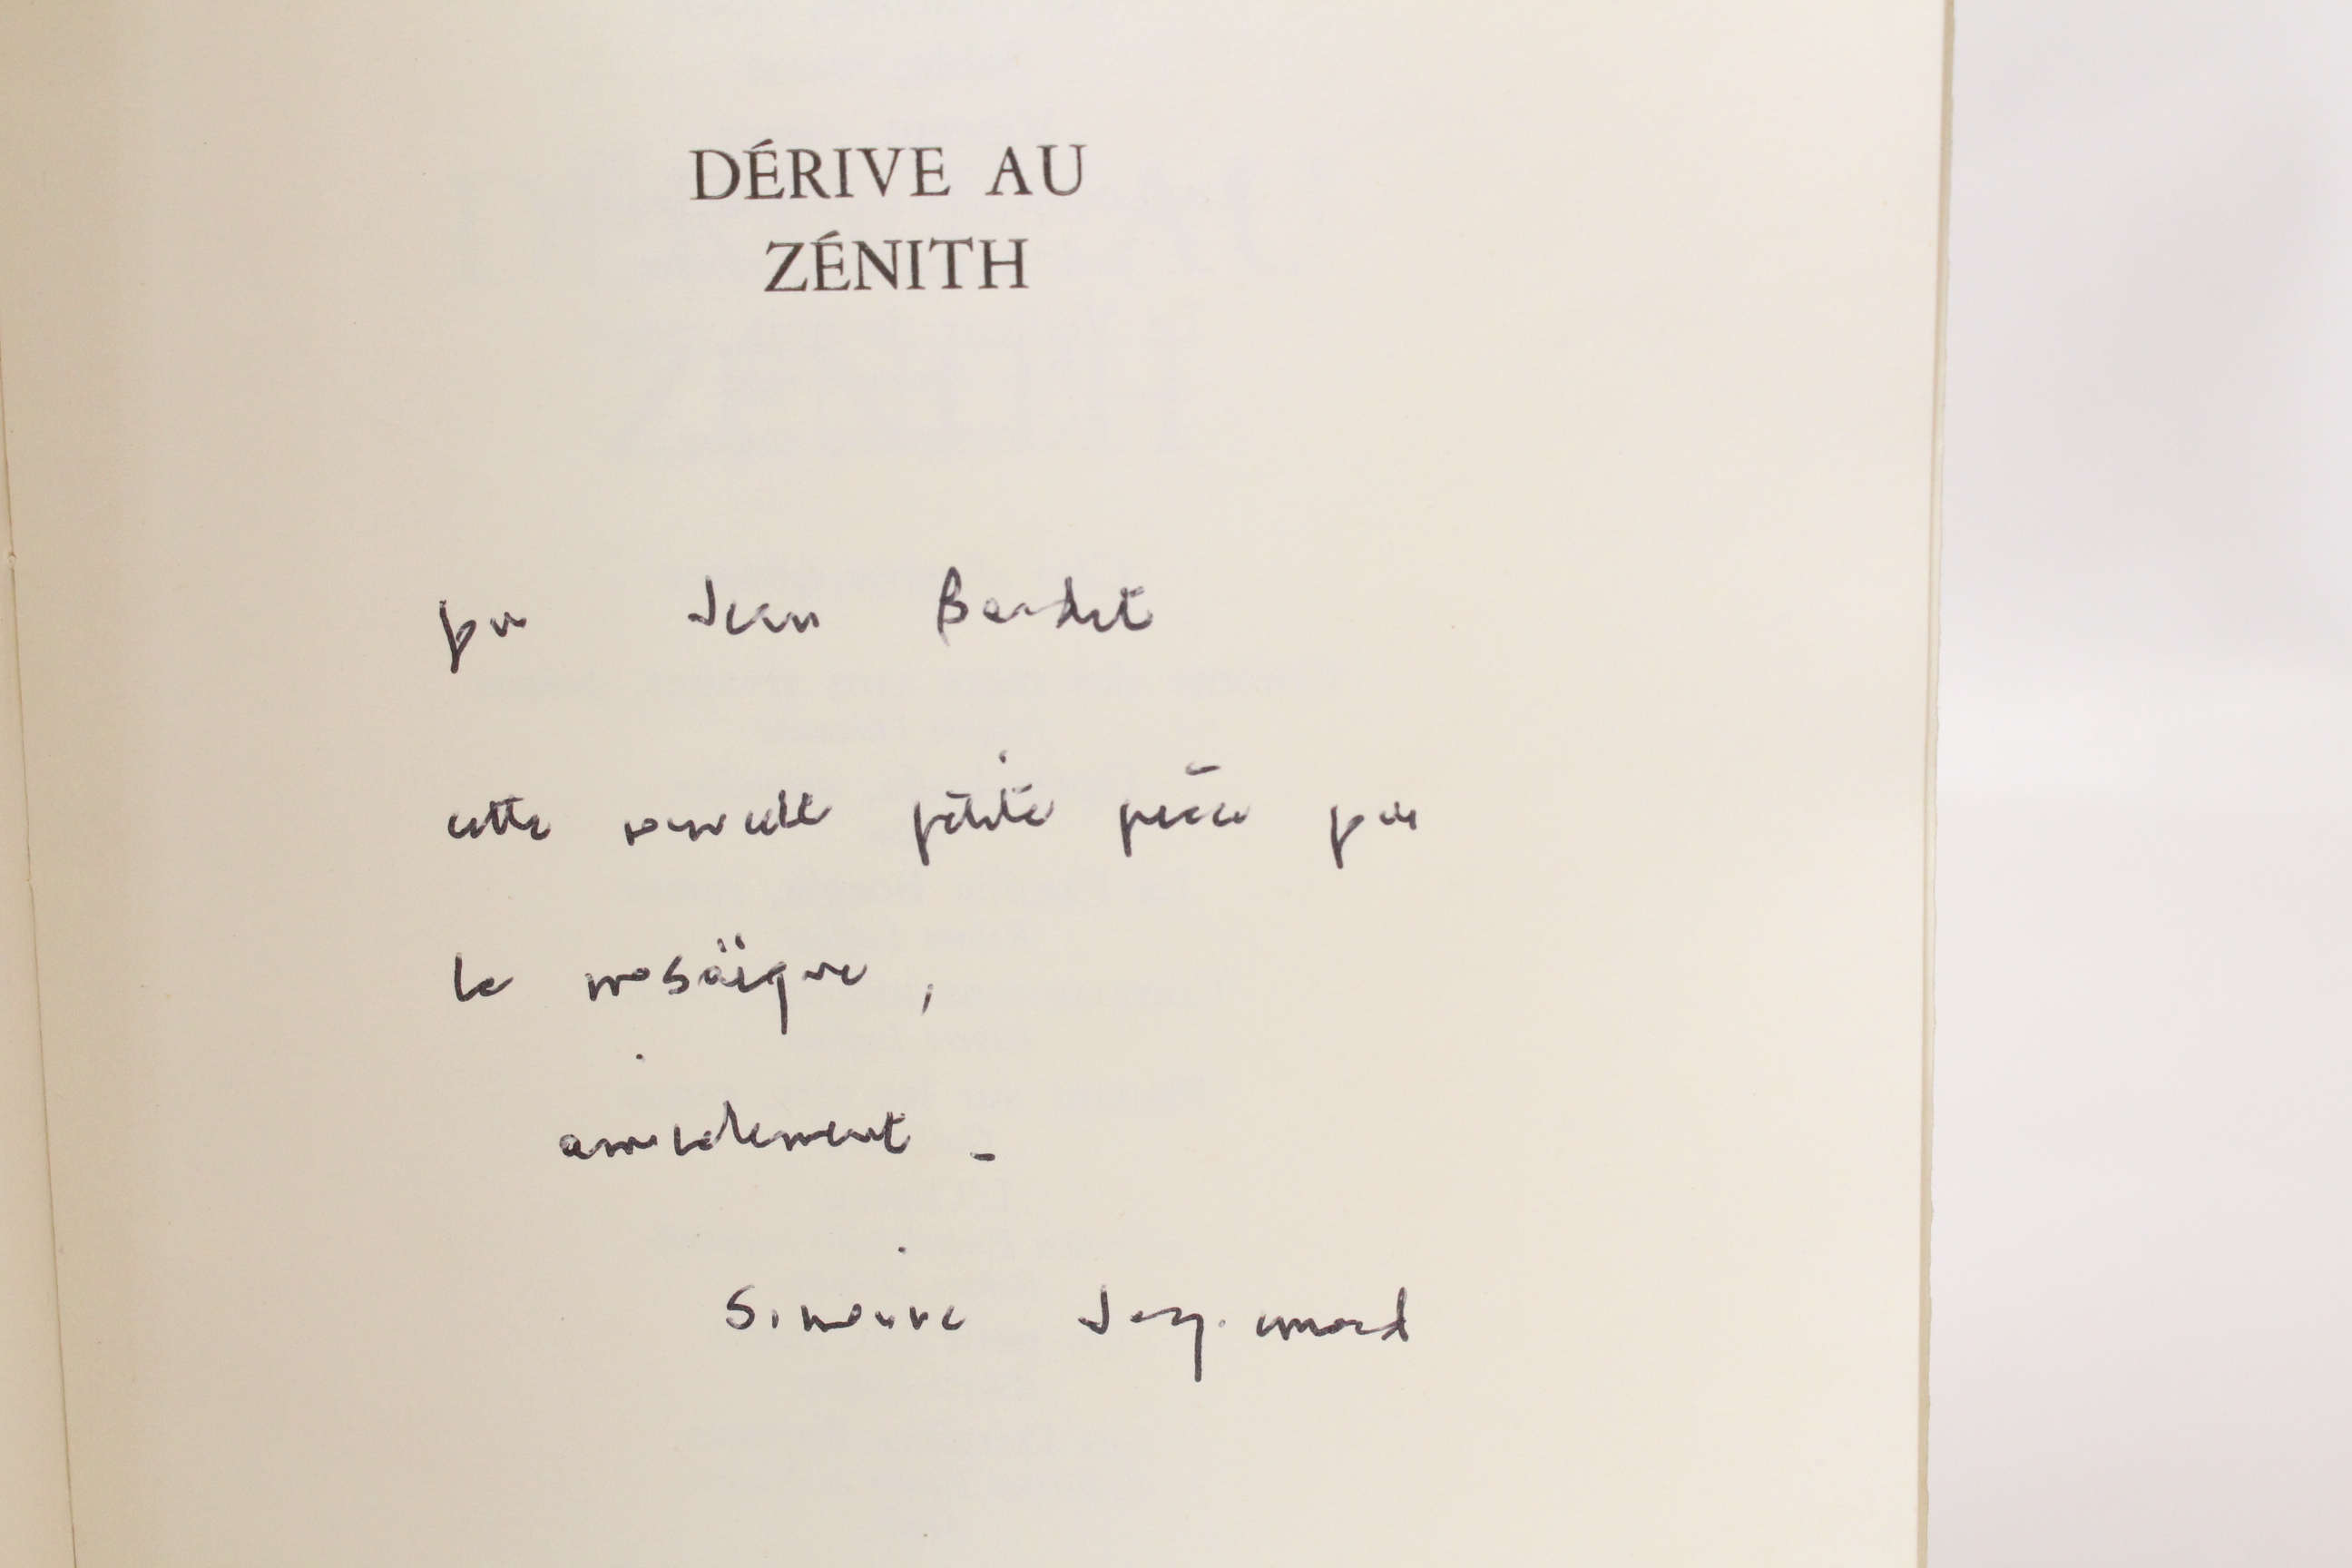 DÉRIVE AU
ZÉNITH
pour Jean Bardet
cette nouvelle petite pièce pour
la mosaïque,
amicalement -
Simone Jacquemard